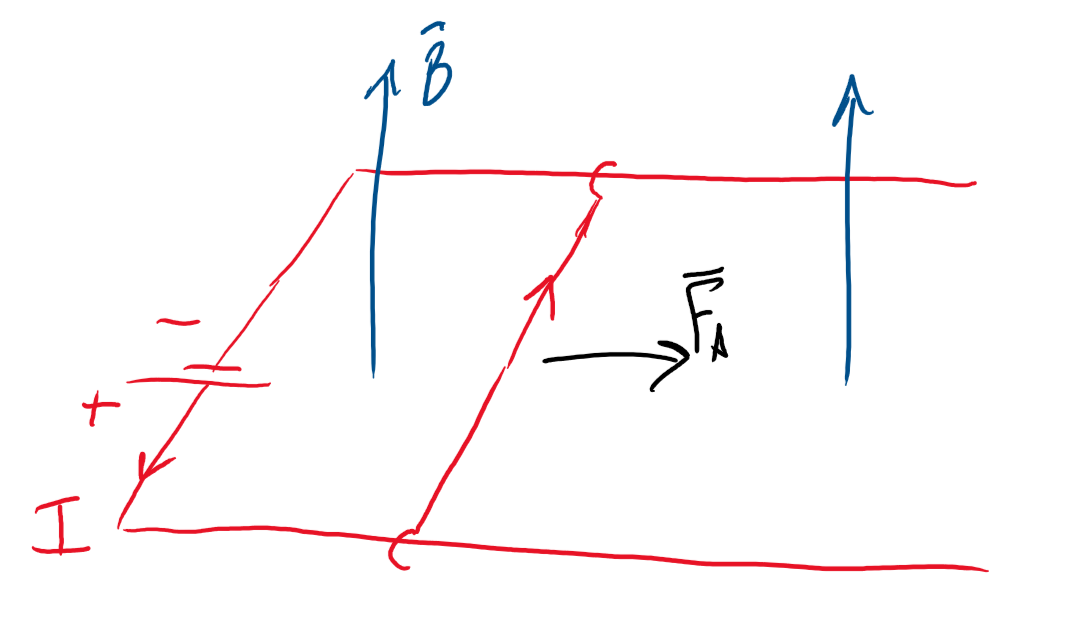 B⃗
F⃗_A
−
+
I